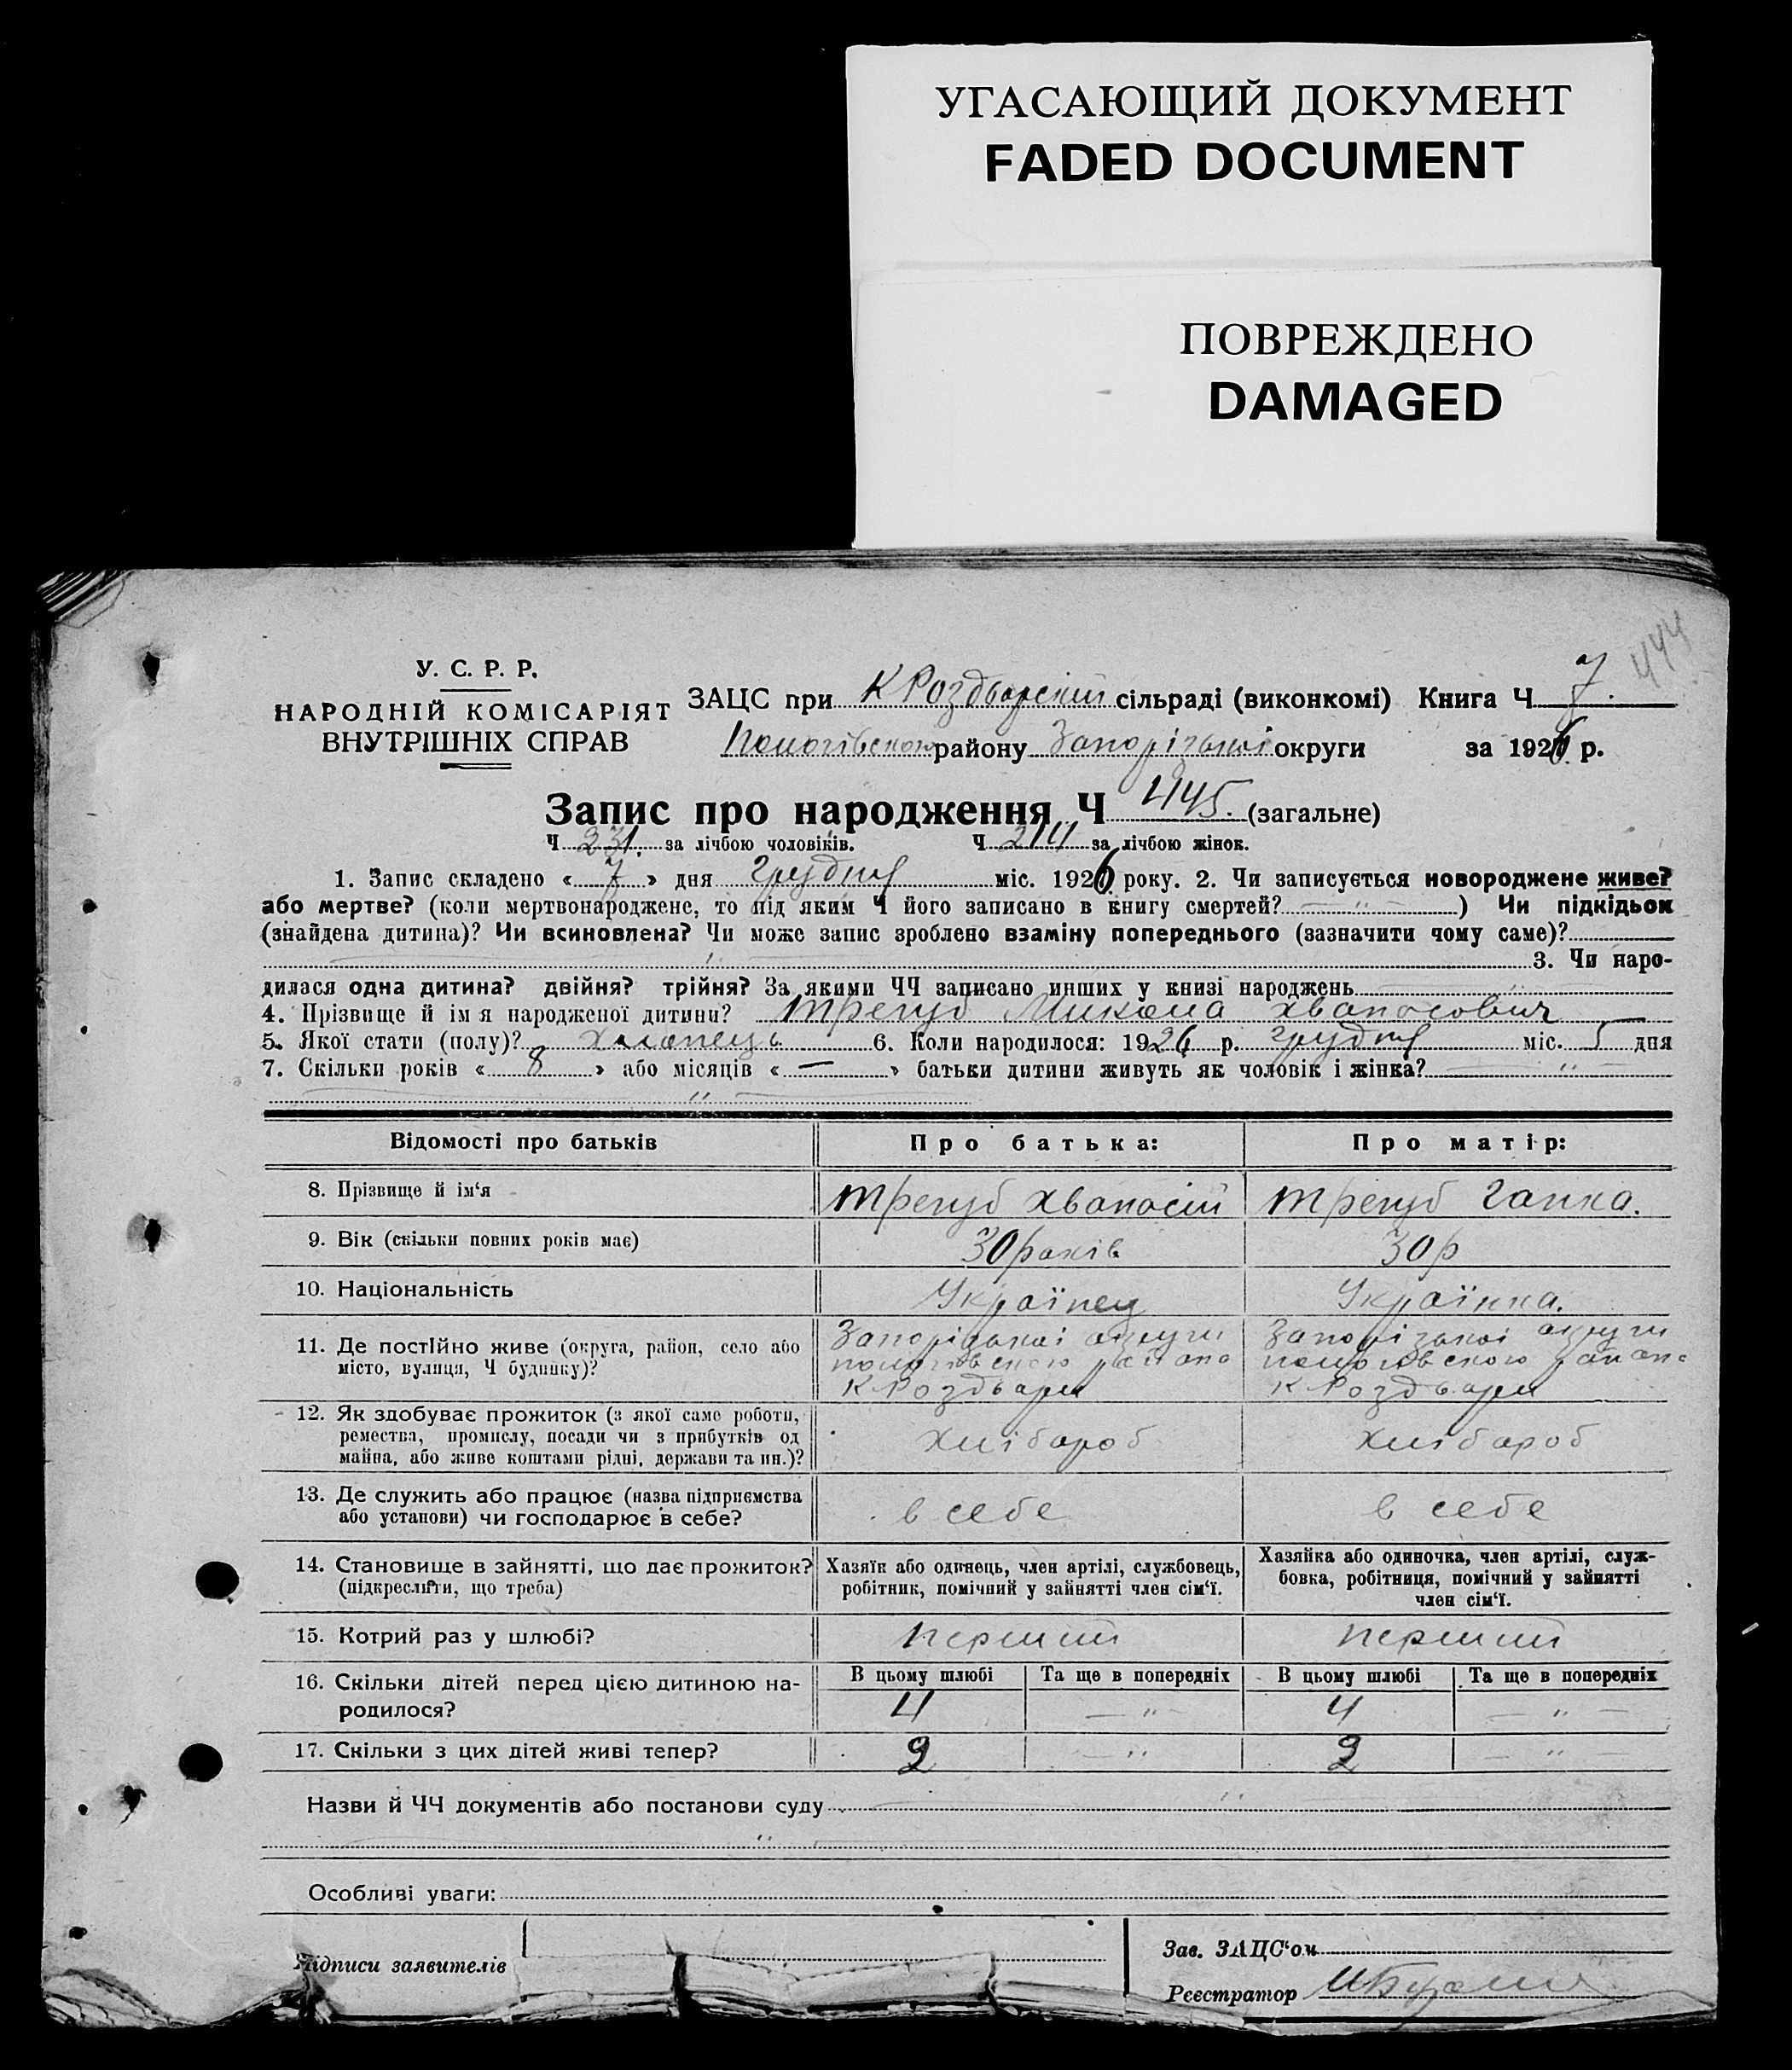 УГАСАЮЩИЙ ДОКУМЕНТ
FADED DOCUMENT
ПОВРЕЖДЕНО
DAMAGED
444
У. С. Р. Р.
НАРОДНІЙ КОМІСАРІЯТ
ВНУТРІШНІХ СПРАВ
ЗАЦС при К Роздорській сільраді (виконкомі) Книга Ч 7.
Пологівського району Запорізької округи за 1926 р.
Запис про народження Ч 445. (загальне)
Ч 231. за лічбою чоловіків. Ч 214 за лічбою жінок.
1. Запис складено « 7 » дня грудня міс. 1926 року. 2. Чи записується новороджене живе?
або мертве? (коли мертвонароджене, то під яким Ч його записано в книгу смертей? — " —) Чи підкідьок
(знайдена дитина)? Чи всиновлена? Чи може запис зроблено взаміну попереднього (зазначити чому саме)?
— " — 3. Чи наро-
дилася одна дитина? двійня? трійня? За якими ЧЧ записано инших у книзі народжень — " —
4. Прізвище й ім я народженої дитини? Трегуб Микола Хванасович
5. Якої стати (полу)? Хлопець 6. Коли народилося: 1926 р. грудня міс. 5 дня
7. Скільки років « 8 » або місяців « — » батьки дитини живуть як чоловік і жінка? — " —
— " —
Відомості про батьків Про батька: Про матір:
8. Прізвище й ім‘я Трегуб Хванасій Трегуб Гапка.
9. Вік (скільки повних років має) 30 років 30 р
10. Національність Українец Українка.
11. Де постійно живе (округа, район, село або
місто, вулиця, Ч будинку)?
Запорізької округи
пологівського району
К Роздори
Запорізької округи
пологовского району
К Роздори
12. Як здобуває прожиток (з якої саме роботи,
ремества, промислу, посади чи з прибутків од
майна, або живе коштами рідні, держави та ин.)?
Хлібороб Хлібороб
13. Де служить або працює (назва підприємства
або установи) чи господарює в себе?
в себе в себе
14. Становище в зайнятті, що дає прожиток?
(підкреслити, що треба)
Хазяїн або одинець, член артілі, службовець,
робітник, помічний у зайнятті член сім‘ї.
Хазяйка або одиночка, член артілі, служ-
бовка, робітниця, помічний у зайнятті
член сім‘ї.
15. Котрий раз у шлюбі? перший перший
16. Скільки дітей перед цією дитиною на-
родилося?
В цьому шлюбі Та ще в попередніх В цьому шлюбі Та ще в попередніх
4 — " — 4 — " —
17. Скільки з цих дітей живі тепер? 2 — " — 2 — " —
Назви й ЧЧ документів або постанови суду — " —
— " —
Особливі уваги:
Підписи заявителів
Зав. ЗАЦС‘ом
Реєстратор